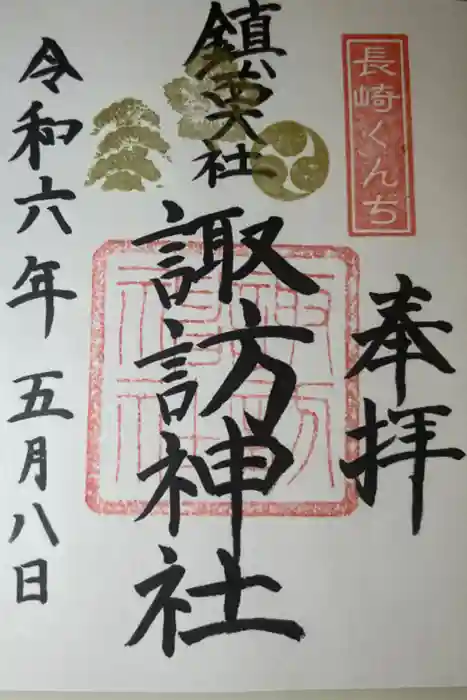 長崎くんち
奉拝
鎮西大社
諏訪神社
令和六年 五月八日